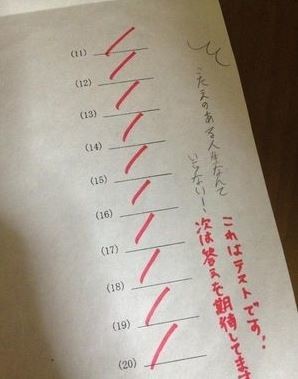 (11)
(12)
(13)
(14)
(15)
(16)
(17)
(18)
(19)
(20)
こたえのある人生なんて
いらない!
これはテストです!
次は答えを期待してます